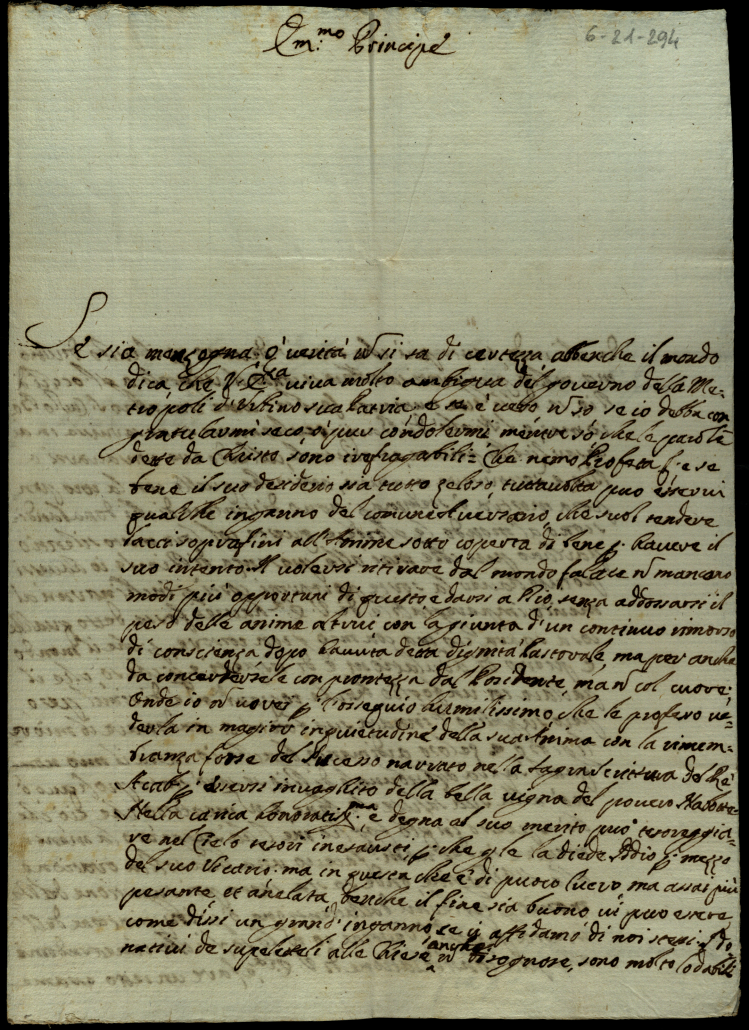 Em.mo Principe
6-21-294
Se sia menzogna, ò verità ñ si sa di certezza abbenche il mondo
dica che V. Em.za viva molto ambigua del governo della Me-
tropoli d'Urbino sua Patria, e se è vero ñ so se io debba con
gratularmi seco, ò pur condolermi mentre sò che le parole
dette da Christo sono irrefragabili= Che nemo Profeta e se
bene il suo desiderio sia tutto zeloso, tuttavolta può esservi
qualche inganno del comune Avversario, che suol tendere
lacci soprafini all'Anime sotto coperta di bene p. havere il
suo intento. Il volersi ritirare dal mondo fallace ñ mancano
modi più opportuni di questo e darsi a Dio, senza addossarsi il
peso delle anime altrui con la giunta d'un continuo rimorso
di conscienza dopo havuta detta dignità Pastorale, ma per anche
da concedersele con prontezza dal Possidente, ma ñ col cuore;
Onde io ñ vorrei p. l'osseguio humilissimo che le professo ve-
derla in maggior inquietudine della sua Anima con la rimem-
branza forse del successo narrato nella Sagra Scrittura del Rè
Acab p. essersi invaghito della bella vigna del povero Nabotte.
Nella carica honoratis.ma e degna al suo merito può tesoreggia-
re nel Cielo tesori inesausti, p. che gle la diede Iddio p. mezzo
del suo Vicario: ma in questa che è di puoco lucro ma assai più
pesante, et anelata, benche il fine sia buono vi può essere
come dissi un grand'inganno se ci affidamo di noi stessi. Do-
nativi de supeletili alle Chiese anche ñ bisognose, sono molto lodabili